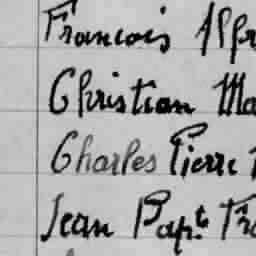 Francois Alfr
Christian Ma
Charles Pierre
Jean Bapt. Fra